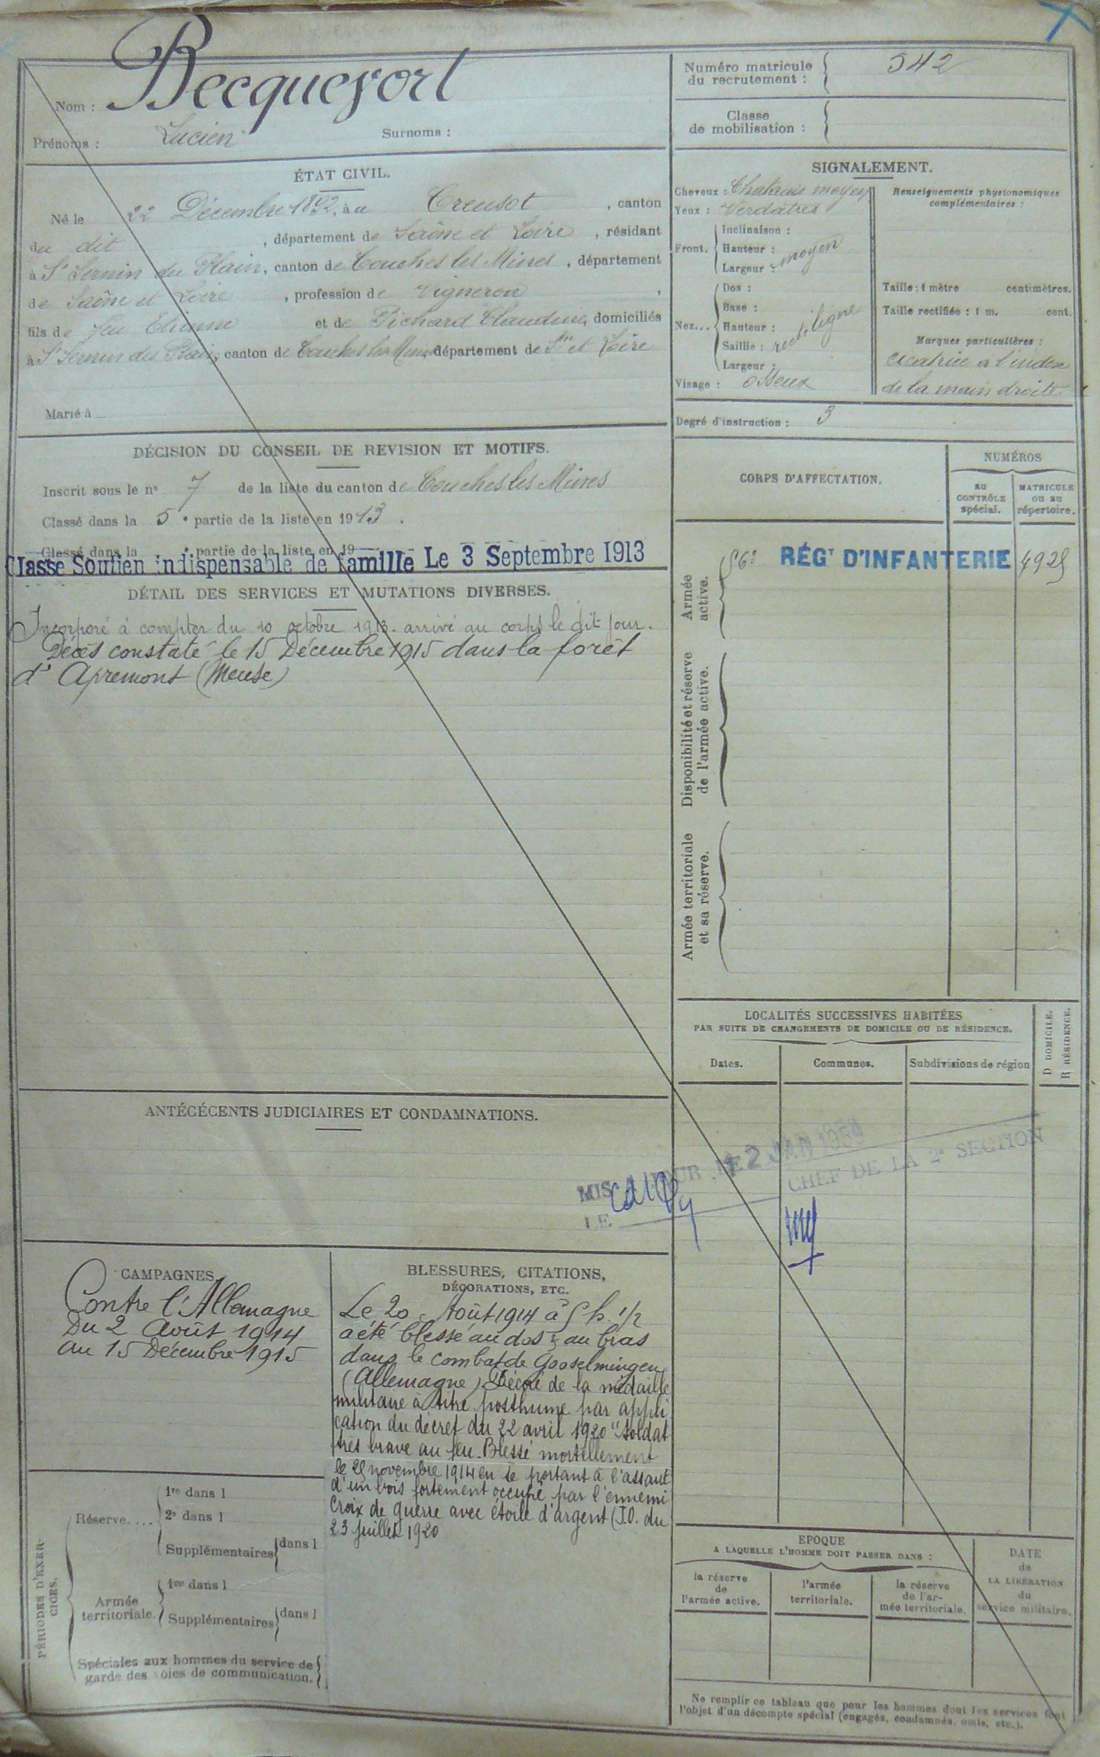 Nom : Becquefort
Prénoms : Lucien Surnoms :
Numéro matricule du recrutement : 542
Classe de mobilisation :
ÉTAT CIVIL.
Né le 22 Décembre 1892, à au Creusot, canton
du dit, département de Saône et Loire, résidant
à St Sernin du Plain, canton de Couches les Mines, département
de Saône et Loire, profession de Vigneron,
fils de feu Etienne et de Pichard Claudine, domiciliés
à St Sernin du Plain, canton de Couches les Mines département de Sne et Loire
Marié à
SIGNALEMENT.
Cheveux : Chatains moyen
Yeux : Verdâtres
Front. Inclinaison :
Hauteur : moyen
Largeur :
Nez... Dos :
Base :
Hauteur : rect. ligne
Saillie :
Largeur :
Visage : Osseux
Renseignements physionomiques
complémentaires :
Taille : 1 mètre centimètres.
Taille rectifiée : 1 m. cent.
Marques particulières :
cicatrice à l'index
de la main droite
Degré d'instruction : 3
DÉCISION DU CONSEIL DE REVISION ET MOTIFS.
Inscrit sous le n° 7 de la liste du canton de Couches les Mines
Classé dans la 5e partie de la liste en 1913.
Classé dans la e partie de la liste en 19
Classé Soutien indispensable de famille Le 3 Septembre 1913
DÉTAIL DES SERVICES ET MUTATIONS DIVERSES.
Incorporé à compter du 10 octobre 1913. arrivé au corps le dit jour.
Décès constaté le 15 Décembre 1915 dans la forêt
d'Apremont (Meuse)
CORPS D'AFFECTATION.
NUMÉROS
AU CONTRÔLE spécial.
MATRICULE ou au répertoire.
Armée active.
56e RÉGT D'INFANTERIE 4925
Disponibilité et réserve de l'armée active.
Armée territoriale et sa réserve.
LOCALITÉS SUCCESSIVES HABITÉES
PAR SUITE DE CHANGEMENTS DE DOMICILE OU DE RÉSIDENCE.
Dates. Communes. Subdivisions de région
D DOMICILE.
R RÉSIDENCE.
ANTÉCÉCENTS JUDICIAIRES ET CONDAMNATIONS.
MIS A JOUR LE 2 JAN
LE CHEF DE LA 2e SECTION
CAMPAGNES.
Contre l'Allemagne
Du 2 Août 1914
au 15 Décembre 1915
BLESSURES, CITATIONS,
DÉCORATIONS, ETC.
Le 20 Août 1914 à 5 h. 1/2
a été blessé au dos & au bras
dans le combat de Gosselmingen
(Allemagne) Décoré de la médaille
militaire à titre posthume par appli
cation du décret du 22 avril 1920 "Soldat
très brave au feu. Blessé mortellement
le 29 novembre 1914 en se portant à l'assaut
d'un bois fortement occupé par l'ennemi
Croix de guerre avec étoile d'argent (J.O. du
23 juillet 1920
PÉRIODES D'EXERCICES.
Réserve....
1re dans l
2e dans l
Supplémentaires dans l
Armée territoriale.
1re dans l
Supplémentaires dans l
Spéciales aux hommes du service de
garde des voies de communication.
EPOQUE
A LAQUELLE L'HOMME DOIT PASSER DANS :
la réserve de l'armée active.
l'armée territoriale.
la réserve de l'armée territoriale.
DATE de LA LIBÉRATION du service militaire.
Ne remplir ce tableau que pour les hommes dont les services font
l'objet d'un décompte spécial (engagés, condamnés, omis, etc.).